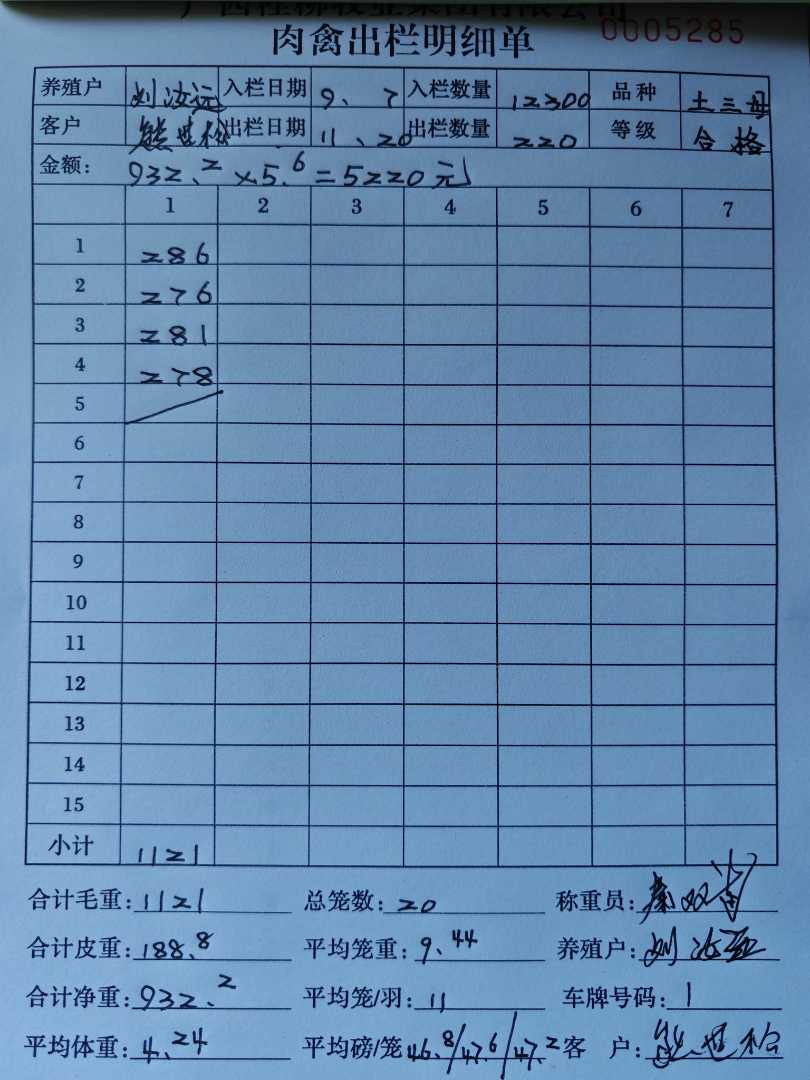 广西桂柳牧业集团有限公司
肉禽出栏明细单 0005285
养殖户 刘汝远 入栏日期 9、7 入栏数量 12300 品种 土三母
客户 熊世松 出栏日期 11、20 出栏数量 220 等级 合格
金额: 932.2×5.6=5220元
1 2 3 4 5 6 7
1 286
2 276
3 281
4 278
5
6
7
8
9
10
11
12
13
14
15
小计 1121
合计毛重: 1121 总笼数: 20 称重员:
合计皮重: 188.8 平均笼重: 9.44 养殖户: 刘汝远
合计净重: 932.2 平均笼/羽: 11 车牌号码: 1
平均体重: 4.24 平均磅/笼 46.8/47.6/47.2 客 户: 熊世松